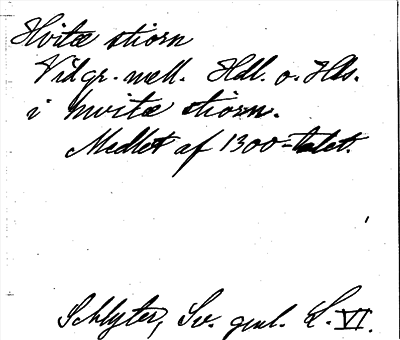 Hvitæ stiorn
Vidgr. mell. Hdl. o. Hls.
i hvitæ stiorn.
Medlet af 1300-talet.
Schlyter, Sv. gml. L. VI.